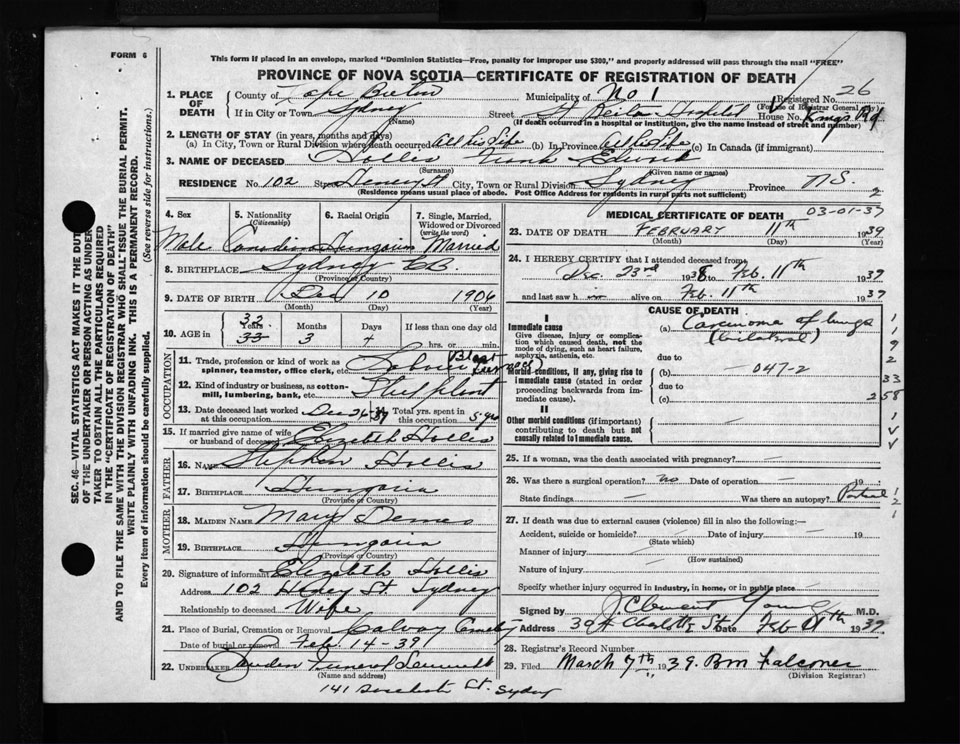 FORM 6
This form if placed in an envelope, marked "Dominion Statistics—Free, penalty for improper use $300," and properly addressed will pass through the mail "FREE"
PROVINCE OF NOVA SCOTIA—CERTIFICATE OF REGISTRATION OF DEATH
1. PLACE OF DEATH
County of Cape Breton Municipality of No 1 Registered No. 26
(For use of Registrar General only)
If in City or Town Sydney Street St Hospital House No. Kings Rd
(Name) (If death occurred in a hospital or institution, give the name instead of street and number)
2. LENGTH OF STAY (in years, months and days)
(a) In City, Town or Rural Division where death occurred All his life (b) In Province All his life (c) In Canada (if immigrant)
3. NAME OF DECEASED Hollis Frank
(Surname) (Given name or names)
RESIDENCE No. 102 Street Henry St City, Town or Rural Division Sydney Province NS
2
(Residence means usual place of abode. Post Office Address for residents in rural parts not sufficient)
4. Sex 5. Nationality (Citizenship) 6. Racial Origin 7. Single, Married, Widowed or Divorced (write the word)
Male Canadian Hungarian Married
8. BIRTHPLACE Sydney CB.
(Province or Country)
9. DATE OF BIRTH Dec 10 1906
(Month) (Day) (Year)
10. AGE in Years Months Days If less than one day old
32
33 3 4 hrs. or min.
OCCUPATION
11. Trade, profession or kind of work as spinner, teamster, office clerk, etc. Labourer Blast Furnace
12. Kind of industry or business, as cotton-mill, lumbering, bank, etc. Steel plant
13. Date deceased last worked at this occupation Total yrs. spent in this occupation 5 yrs
15. If married give name of wife or husband of deceased Elizabeth Hollis
FATHER
16. NAME Stephen Hollis
17. BIRTHPLACE Hungaria
(Province or Country)
MOTHER
18. MAIDEN NAME Mary
19. BIRTHPLACE Hungaria
(Province or Country)
20. Signature of informant Elizabeth Hollis
Address 102 Henry St. Sydney
Relationship to deceased Wife
21. Place of Burial, Cremation or Removal
Date of burial or removal Feb. 14-39
22. UNDERTAKER Funeral
(Name and address)
141 St. Sydney
MEDICAL CERTIFICATE OF DEATH 03-01-37
23. DATE OF DEATH FEBRUARY 11th 1939
(Month) (Day) (Year)
24. I HEREBY CERTIFY that I attended deceased from
Dec. 23rd 1938 to Feb. 11th 1939
and last saw him alive on Feb. 11th 1939
CAUSE OF DEATH
I
Immediate cause
Give disease, injury or complication which caused death, not the mode of dying, such as heart failure, asphyxia, asthenia, etc.
(a) Carcinoma of lungs
(bilateral)
due to
Morbid conditions, if any, giving rise to immediate cause (stated in order proceeding backwards from immediate cause).
(b) — 047-2
due to
(c) —
II
Other morbid conditions (if important) contributing to death but not causally related to immediate cause.
33
258
25. If a woman, was the death associated with pregnancy? —
26. Was there a surgical operation? No Date of operation — 19
State findings — Was there an autopsy? Partial
27. If death was due to external causes (violence) fill in also the following:—
Accident, suicide or homicide? Date of injury 19
(State which)
Manner of injury
(How sustained)
Nature of injury
Specify whether injury occurred in industry, in home, or in public place
Signed by J. Clement Young M.D.
Address Charlotte St Date Feb 11th 1939
28. Registrar's Record Number
29. Filed March 7th 1939. BM Falconer
(Division Registrar)
SEC. 46—VITAL STATISTICS ACT MAKES IT THE DUTY
OF THE UNDERTAKER OR PERSON ACTING AS UNDERTAKER TO OBTAIN ALL THE PARTICULARS REQUIRED
IN THE "CERTIFICATE OF REGISTRATION OF DEATH"
AND TO FILE THE SAME WITH THE DIVISION REGISTRAR WHO SHALL ISSUE THE BURIAL PERMIT.
WRITE PLAINLY WITH UNFADING INK. THIS IS A PERMANENT RECORD.
Every item of information should be carefully supplied. (See reverse side for instructions.)